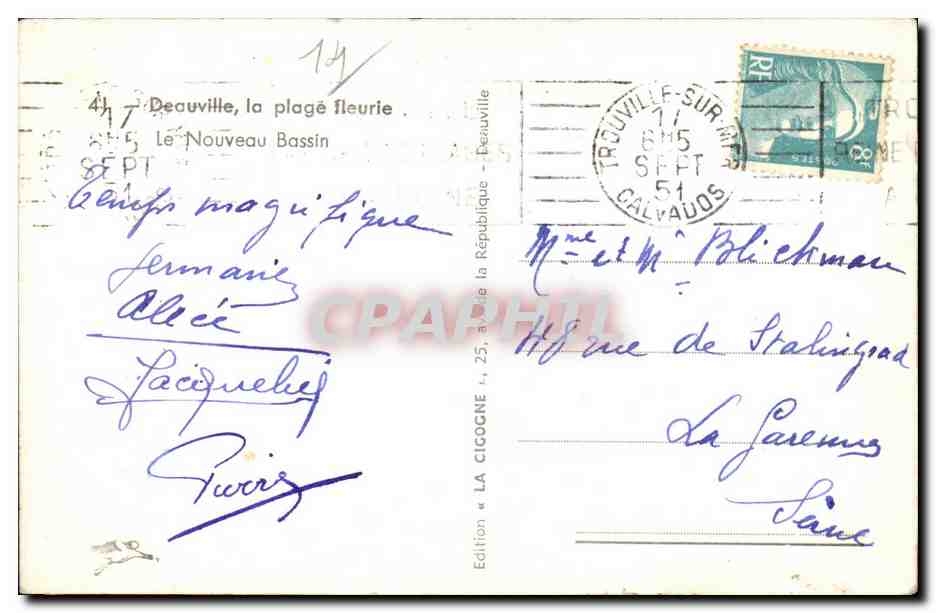 14
41 - Deauville, la plage fleurie
Le Nouveau Bassin
17
6H15
SEPT
51
Temps magnifique
Germaine
Alice
Jacqueline
Pierre
Edition « LA CIGOGNE », 25, av. de la République - Deauville
TROUVILLE-SUR-MER
17
6H15
SEPT
51
CALVADOS
RF
POSTES
8F
TRO
Mme et Mr Blickman
48 rue de Stalingrad
La Garenne
Seine
CPAPHIL